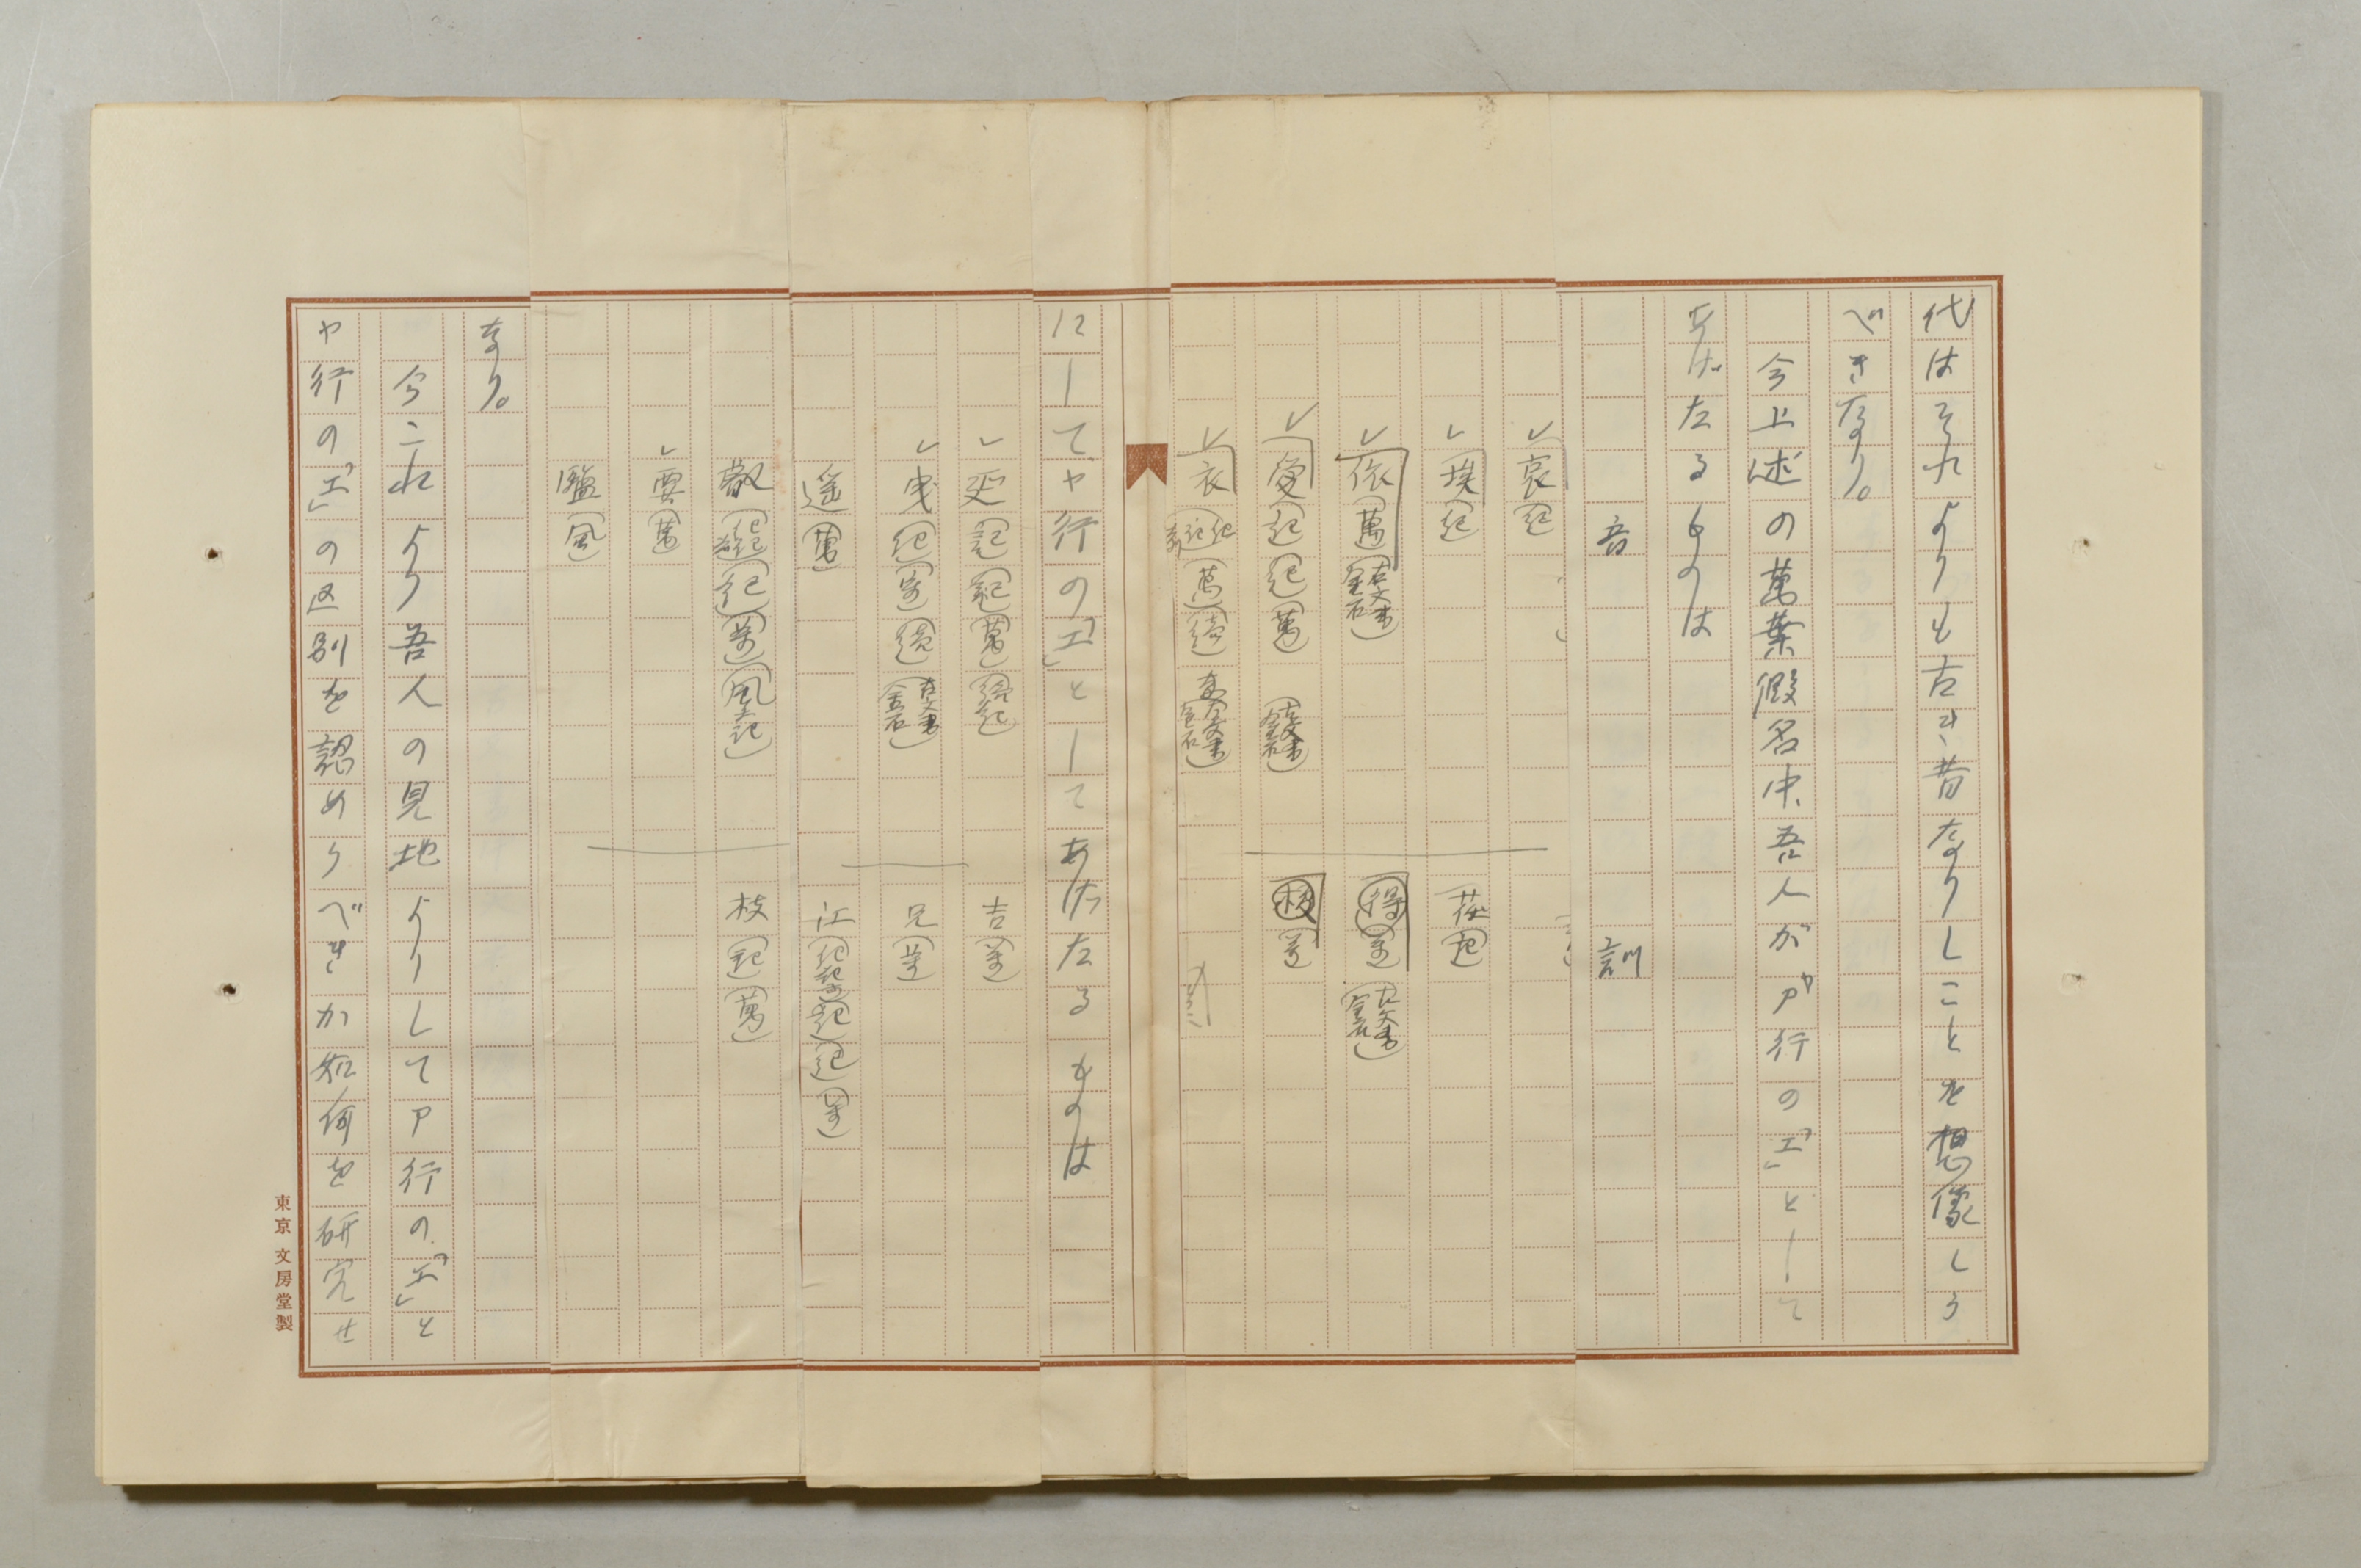 代はそれよりも古き昔なりしことを想像しう
べきなり。
今上述の萬葉假名中、吾人がア行の「エ」として
あげたるものは
音 訓
哀(紀)
埃(紀) 荏(記)
依(萬)(古文書金石) 得(萬)(古文書金石)
愛(記)(紀)(萬)(古文書金石) 榎(萬)
衣(萬)(續)(古文書金石)
にしてヤ行の「エ」としてあげたるものは
延(記)(紀)(萬)(續紀) 吉(萬)
曳(紀)(萬)(續)(古文書金石) 兄(萬)
遥(萬) 江(紀)(記)(萬)
叡(紀)(萬)(風土記) 枝(記)(萬)
要(萬)
鹽(風)
なり。
今これより吾人の見地よりしてア行の「エ」と
ヤ行の「エ」の区別を認めうべきか如何を研究せ
東京 文房堂製